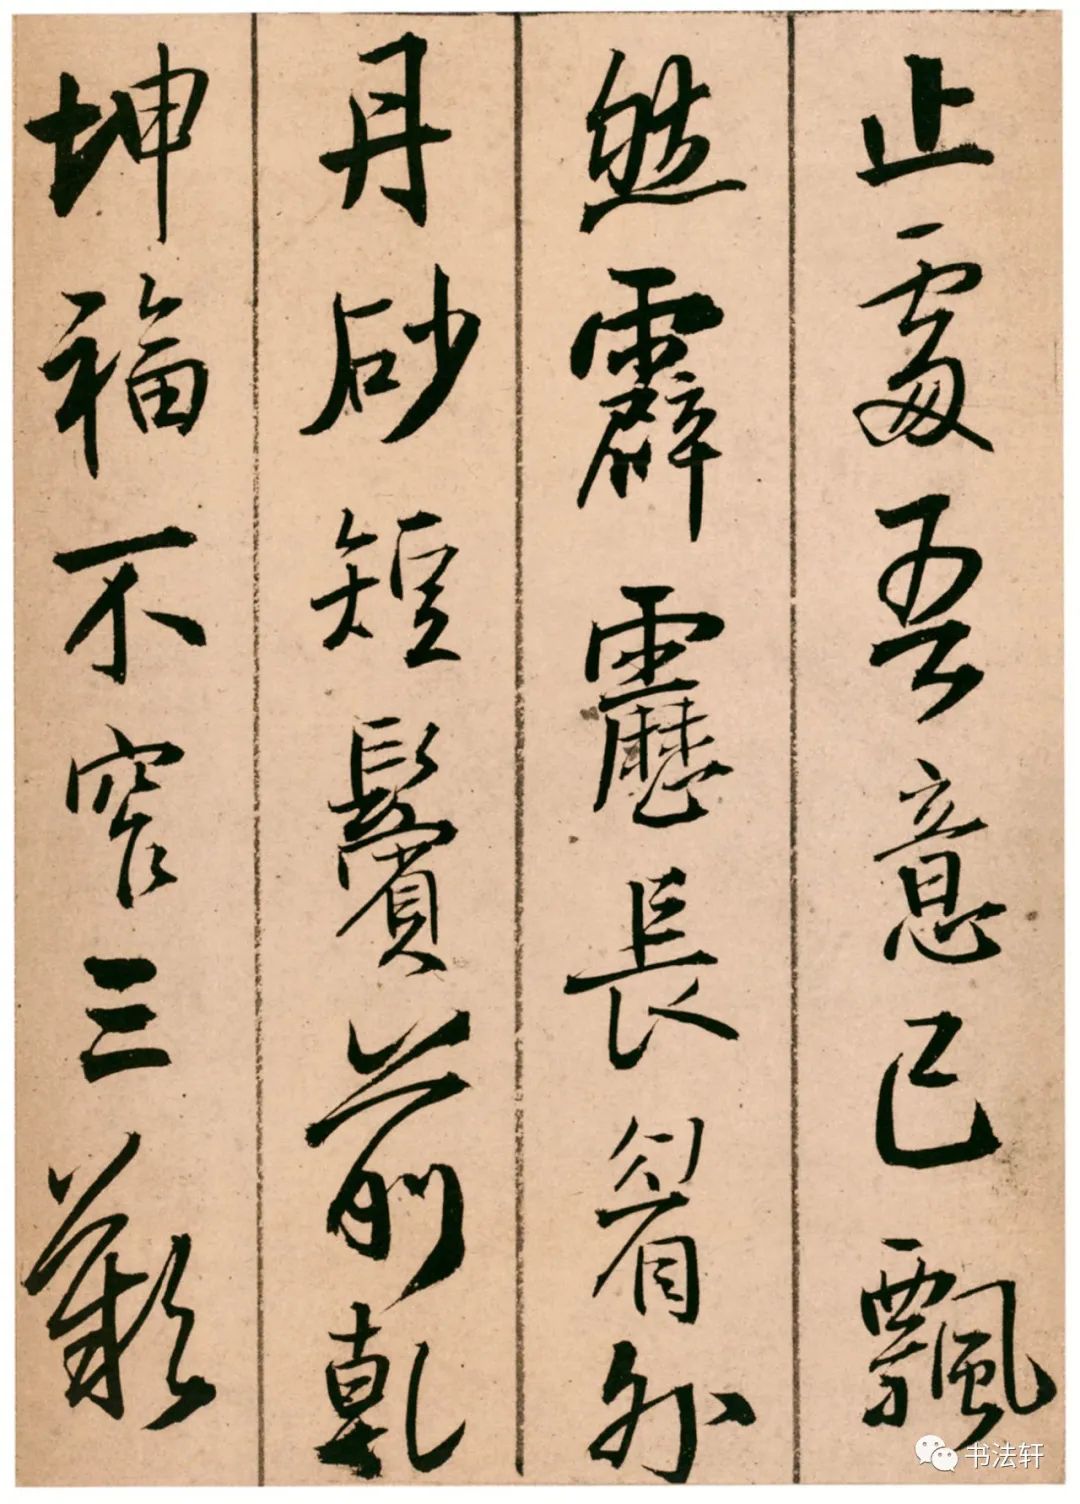 止處吾意已飄
然霹靂長眉外
丹砂短鬢前乾
坤福不窄三歎
书法轩